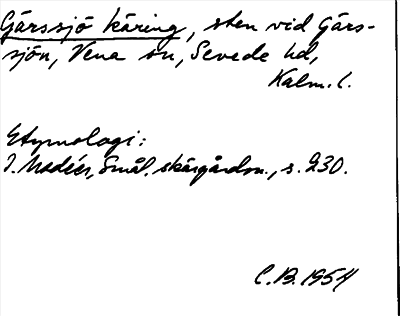 Gårssjö käring, sten vid Gårs-
sjön, Vena sn, Sevede hd,
Kalm. l.
Etymologi:
I. Modéer, Smål. skärgårdsn., s. 230.
C.B. 1954